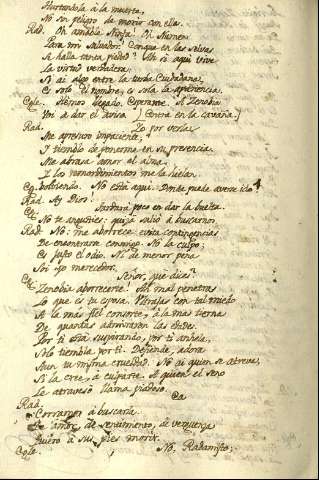 Hurtandola á la muerte,
No sin peligro de morir con ella.
Rad. Oh amable Ninfa! Oh Numen
Para mi Salvador! Conque en las selvas
Se halla tanta piedad? Ah si aqui vive
La virtud verdadera;
Si ai algo entre la turba Ciudadana,
Es solo el nombre, es sola la apariencia.
Egle. Hemos llegado. Esperame. A Zenobia
Voi á dar el aviso. (Entra en la cavaña.)
Rad. Yo por verla
Me apresuro impaciente,
I tiemblo de ponerme en su presencia.
Me abrasa amor el alma,
I los remordimientos me la hielan.
Eg. bolviendo. No está aqui. Donde puede averse ido?
Rad. Ay Dios!
Eg. Tardará poco en dar la buelta.
No te angusties: quizá salió á buscarnos.
Rad. No: me aborrece: evita contingencias
De encontrarse conmigo. No la culpo;
Es justo el odio. Ni de menor pena
Soi yo merecedor.
Eg. Señor, que dices?
Zenobia aborrecerte! Ah mal penetras
Lo que es tu esposa. Ultrajas con tal miedo
A la mas fiel consorte, á la mas tierna
De quantas admiraron las edades.
Por ti está suspirando, por ti anhela,
Solo tiembla por ti. Defiende, adora
Aun tu misma crueldad. No ai quien se atreva,
Si la cree, á culparte. A quien el seno
Le atravesó llama piadosa.
Rad. Ea
Corramos á buscarla.
De amor, de sentimiento, de verguenza
Quiero á sus pies morir.
Egle. No, Radamisto;